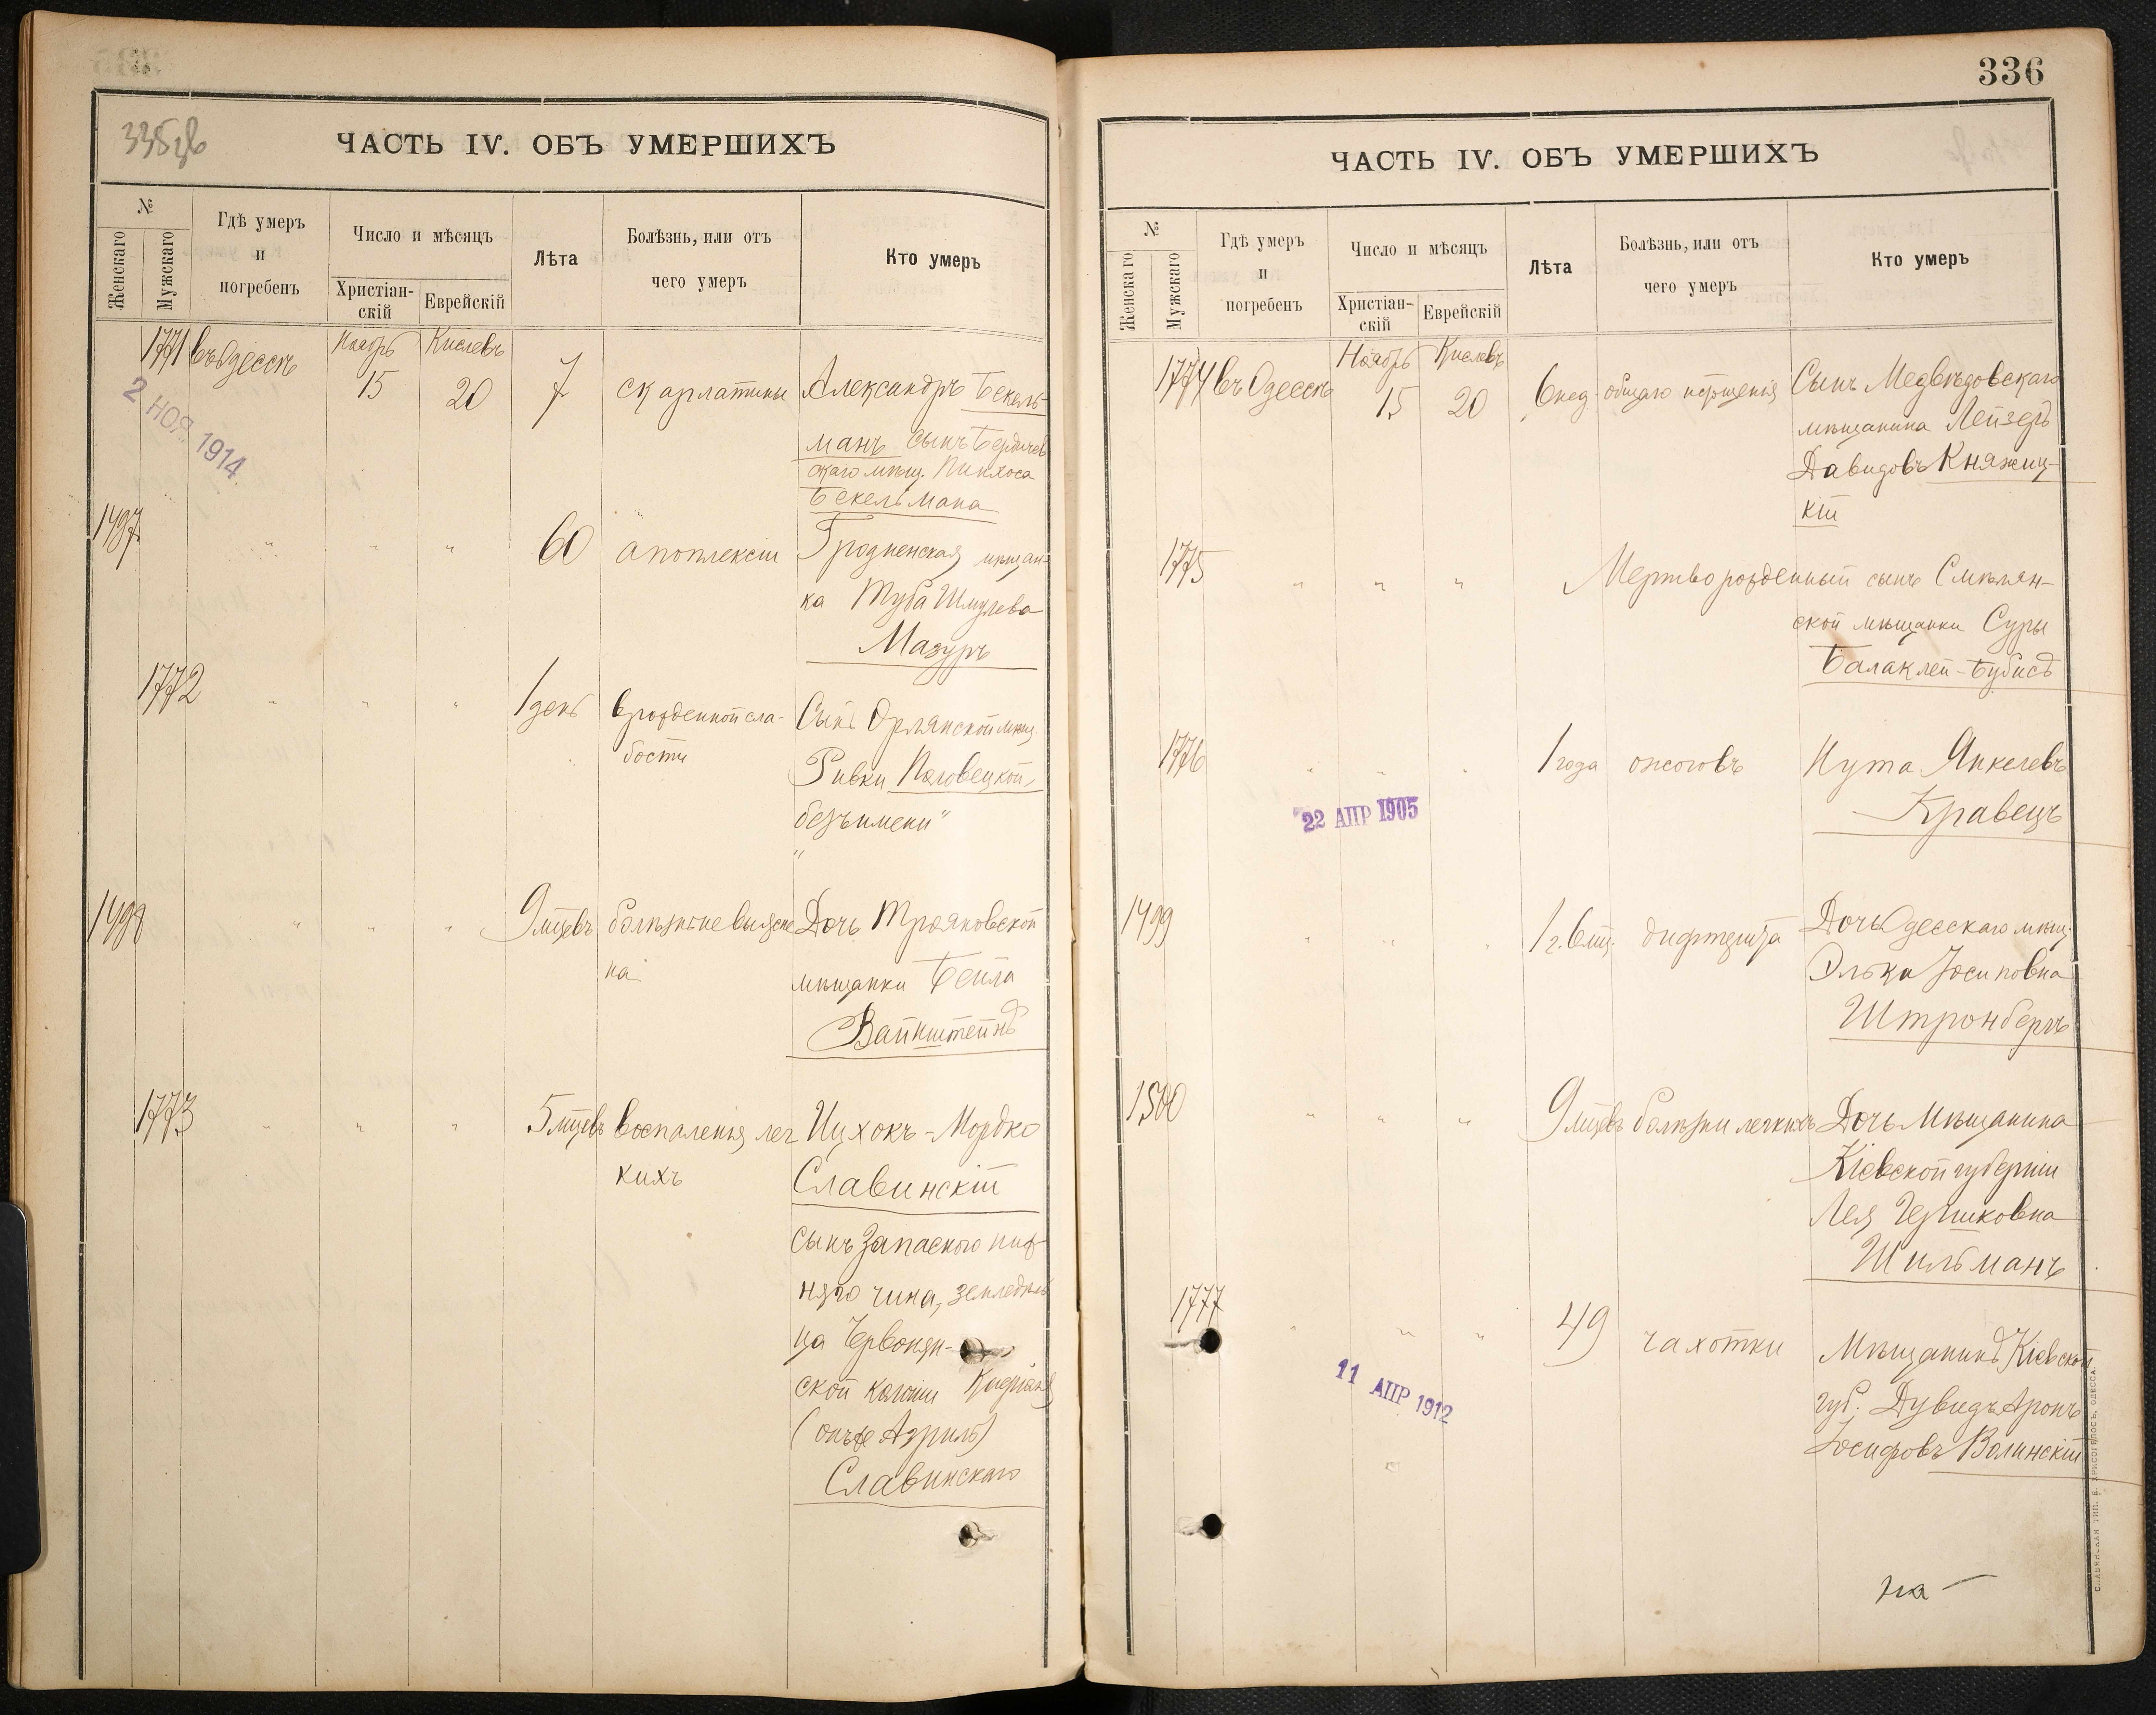 335 об
ЧАСТЬ IV. ОБЪ УМЕРШИХЪ
№
Женскаго
Мужскаго
Гдѣ умеръ
и
погребенъ
Число и мѣсяцъ
Христіан-
скій
Еврейскій
Лѣта
Болѣзнь, или отъ
чего умеръ
Кто умеръ
1771 въ Одессѣ Ноябрь 15 Кислевъ 20 7 скарлатины Александръ Бекель-
манъ сынъ Бердичев
скаго мѣщ. Пинхоса
Бекельмана
2 НОЯ 1914
1497 " " " 60 апоплексіи Гродненская мѣщан-
ка Туба Шмулева
Мазуръ
1772 " " " 1 день врожденной сла-
бости
Сынъ Орлянской мѣщ.
Ривки
безъ имени"
1498 " " " 9 мцевъ болѣзнь не выясне
на
Дочь Трояновской
мѣщанки Бейла
Вайнштейнъ
1773 " " " 5 мцевъ воспаленія лег
кихъ
Ицхокъ-Мордко
Славинскій
сынъ Запасного ниж-
няго чина, земледѣль
ца
ской
(онъ же Азриль)
Славинскаго
336
ЧАСТЬ IV. ОБЪ УМЕРШИХЪ
№
Женскаго
Мужскаго
Гдѣ умеръ
и
погребенъ
Число и мѣсяцъ
Христіан-
скій
Еврейскій
Лѣта
Болѣзнь, или отъ
чего умеръ
Кто умеръ
1774 въ Одессѣ Ноябрь 15 Кислевъ 20 6 нед. общаго истощенія Сынъ Медвѣдовскаго
мѣщанина Лейзеръ
Давидовъ Княжиц-
кій
1775 " " " Мертворожденный сынъ Смѣлян-
ской мѣщанки Суры
Балаклей-Бубисъ
1776 " " " 1 года ожоговъ Нута Янкелевъ
Кравецъ
22 АПР 1905
1499 " " " 1 г. 6 мц. дифтерита Дочь Одесскаго мѣщ.
Элька Іосиповна
Штронбергъ
1500 " " " 9 мцевъ болѣзни легкихъ Дочь Мѣщанина
Кіевской губерніи
Лея Гершковна
Шильманъ
1777 " " " 49 чахотки Мѣщанинъ Кіевской
губ. Дувидъ Аронъ
Іосифовъ Волинскій
11 АПР 1912